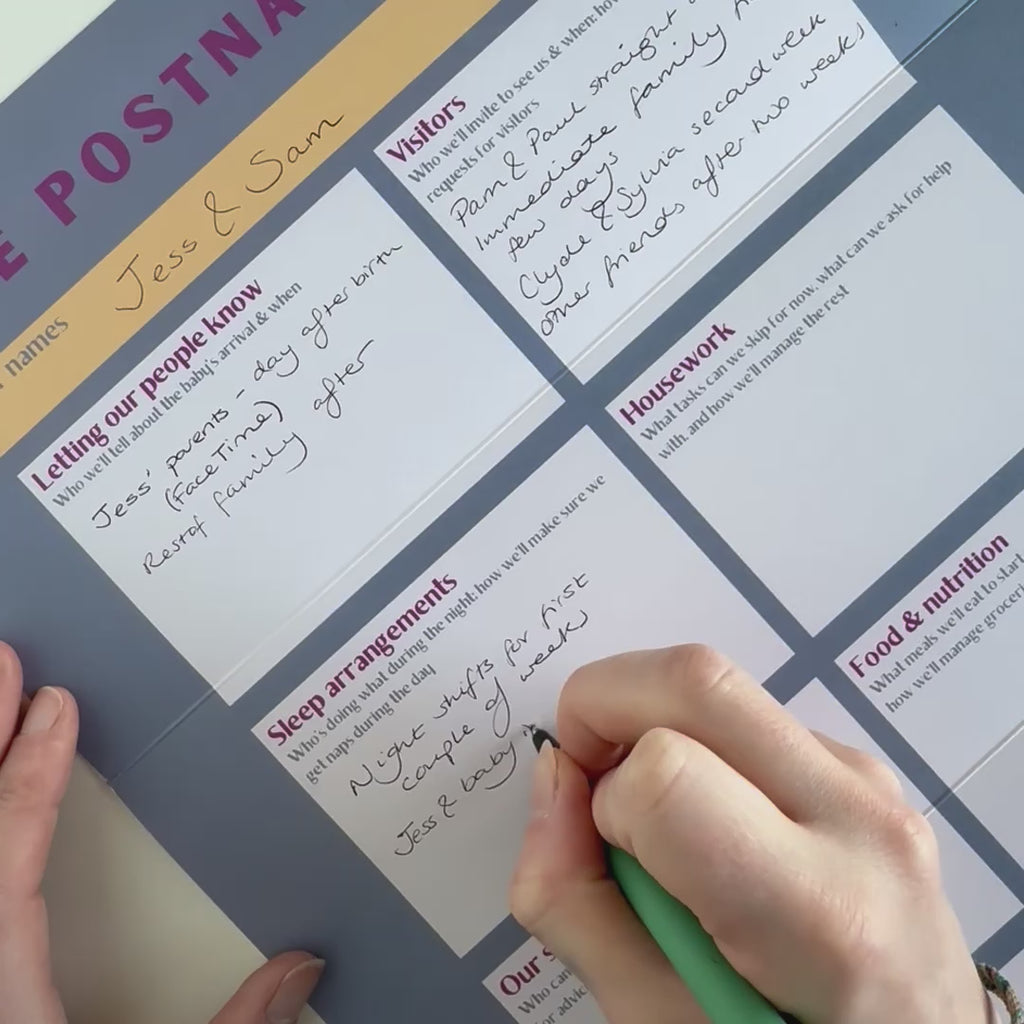 E POSTNA
names Jess & Sam
Letting our people know
Who we'll tell about the baby's arrival & when
Jess' parents - day after birth
(FaceTime)
Rest of family after
Visitors
Who we'll invite to see us & when: how
requests for visitors
Pam & Paul straight
Immediate family
few days
Clyde & Sylvia second week
Other friends after two weeks
Sleep arrangements
Who's doing what during the night: how we'll make sure we
get naps during the day
Night shifts for first
couple of weeks
Jess & baby
Housework
What tasks can we skip for now, what can we ask for help
with, and how we'll manage the rest
Food & nutrition
What meals we'll eat to start
how we'll manage groceri
Our s
Who can
for advic